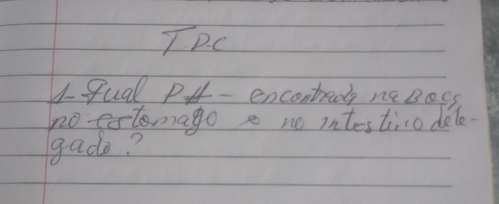 T.P.C
1- Qual PH - encontrada na Boca
no estomago e no intestino dele-
gado?